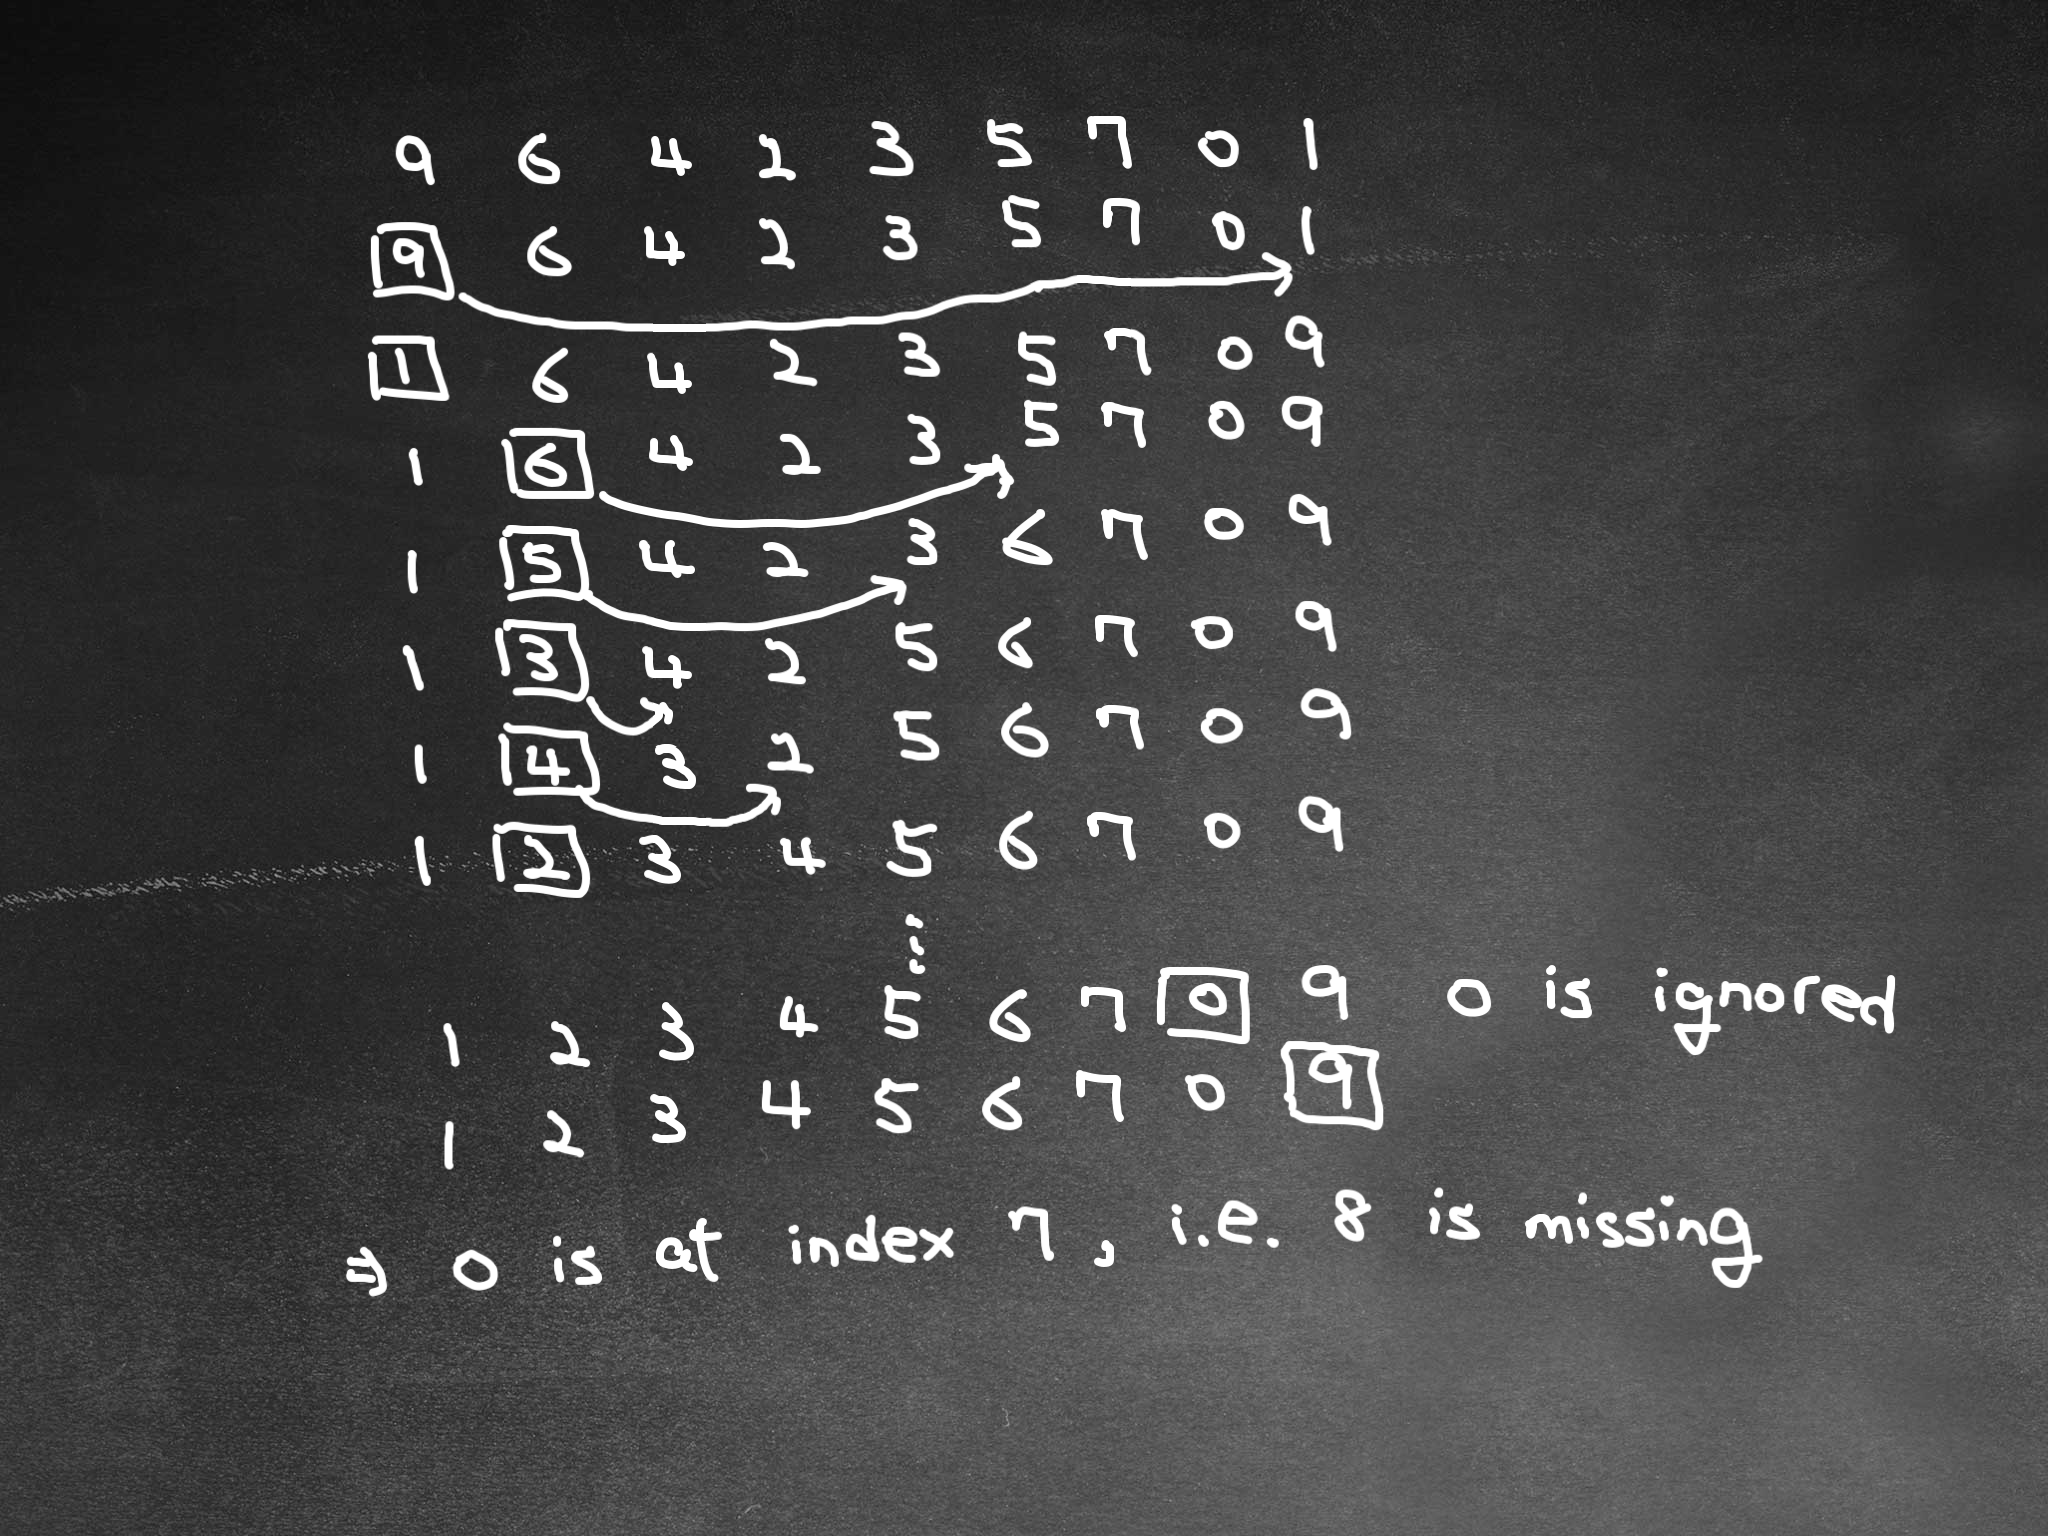 9 6 4 2 3 5 7 0 1
9 6 4 2 3 5 7 0 1
1 6 4 2 3 5 7 0 9
1 6 4 2 3 5 7 0 9
1 5 4 2 3 6 7 0 9
1 3 4 2 5 6 7 0 9
1 4 3 2 5 6 7 0 9
1 2 3 4 5 6 7 0 9
⋮
1 2 3 4 5 6 7 0 9 0 is ignored
1 2 3 4 5 6 7 0 9
⇒ 0 is at index 7, i.e. 8 is missing